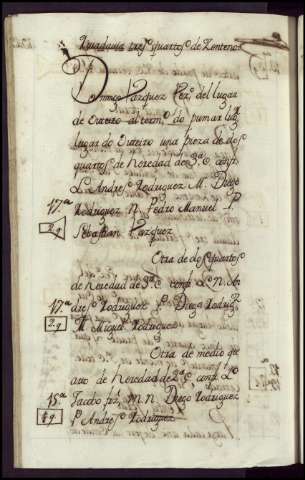 Quadaura tres quartos de Zenteno
Domingo Vazquez Vez.º del lugar
de Outeiro al term.º do pumar del
lugar do Outeiro una pieza de dos
quartos de heredad de 3.ª conf.
L. Andres Rodriguez M. Diego
17.ª Rodriguez N. Pedro Manuel P.
2 q Sebastian Vazquez
Otra de dos quartos
de heredad de 3.ª conf. L. N. An
17.ª dres Rodriguez P. Diego Rodrig.z
2 q M. Miguel Rodriguez
Otra de medio qu
arto de heredad de 2.ª conf. L.
15.ª Jacobo frz. M. N. Diego Rodriguez
P. Andres Rodriguez